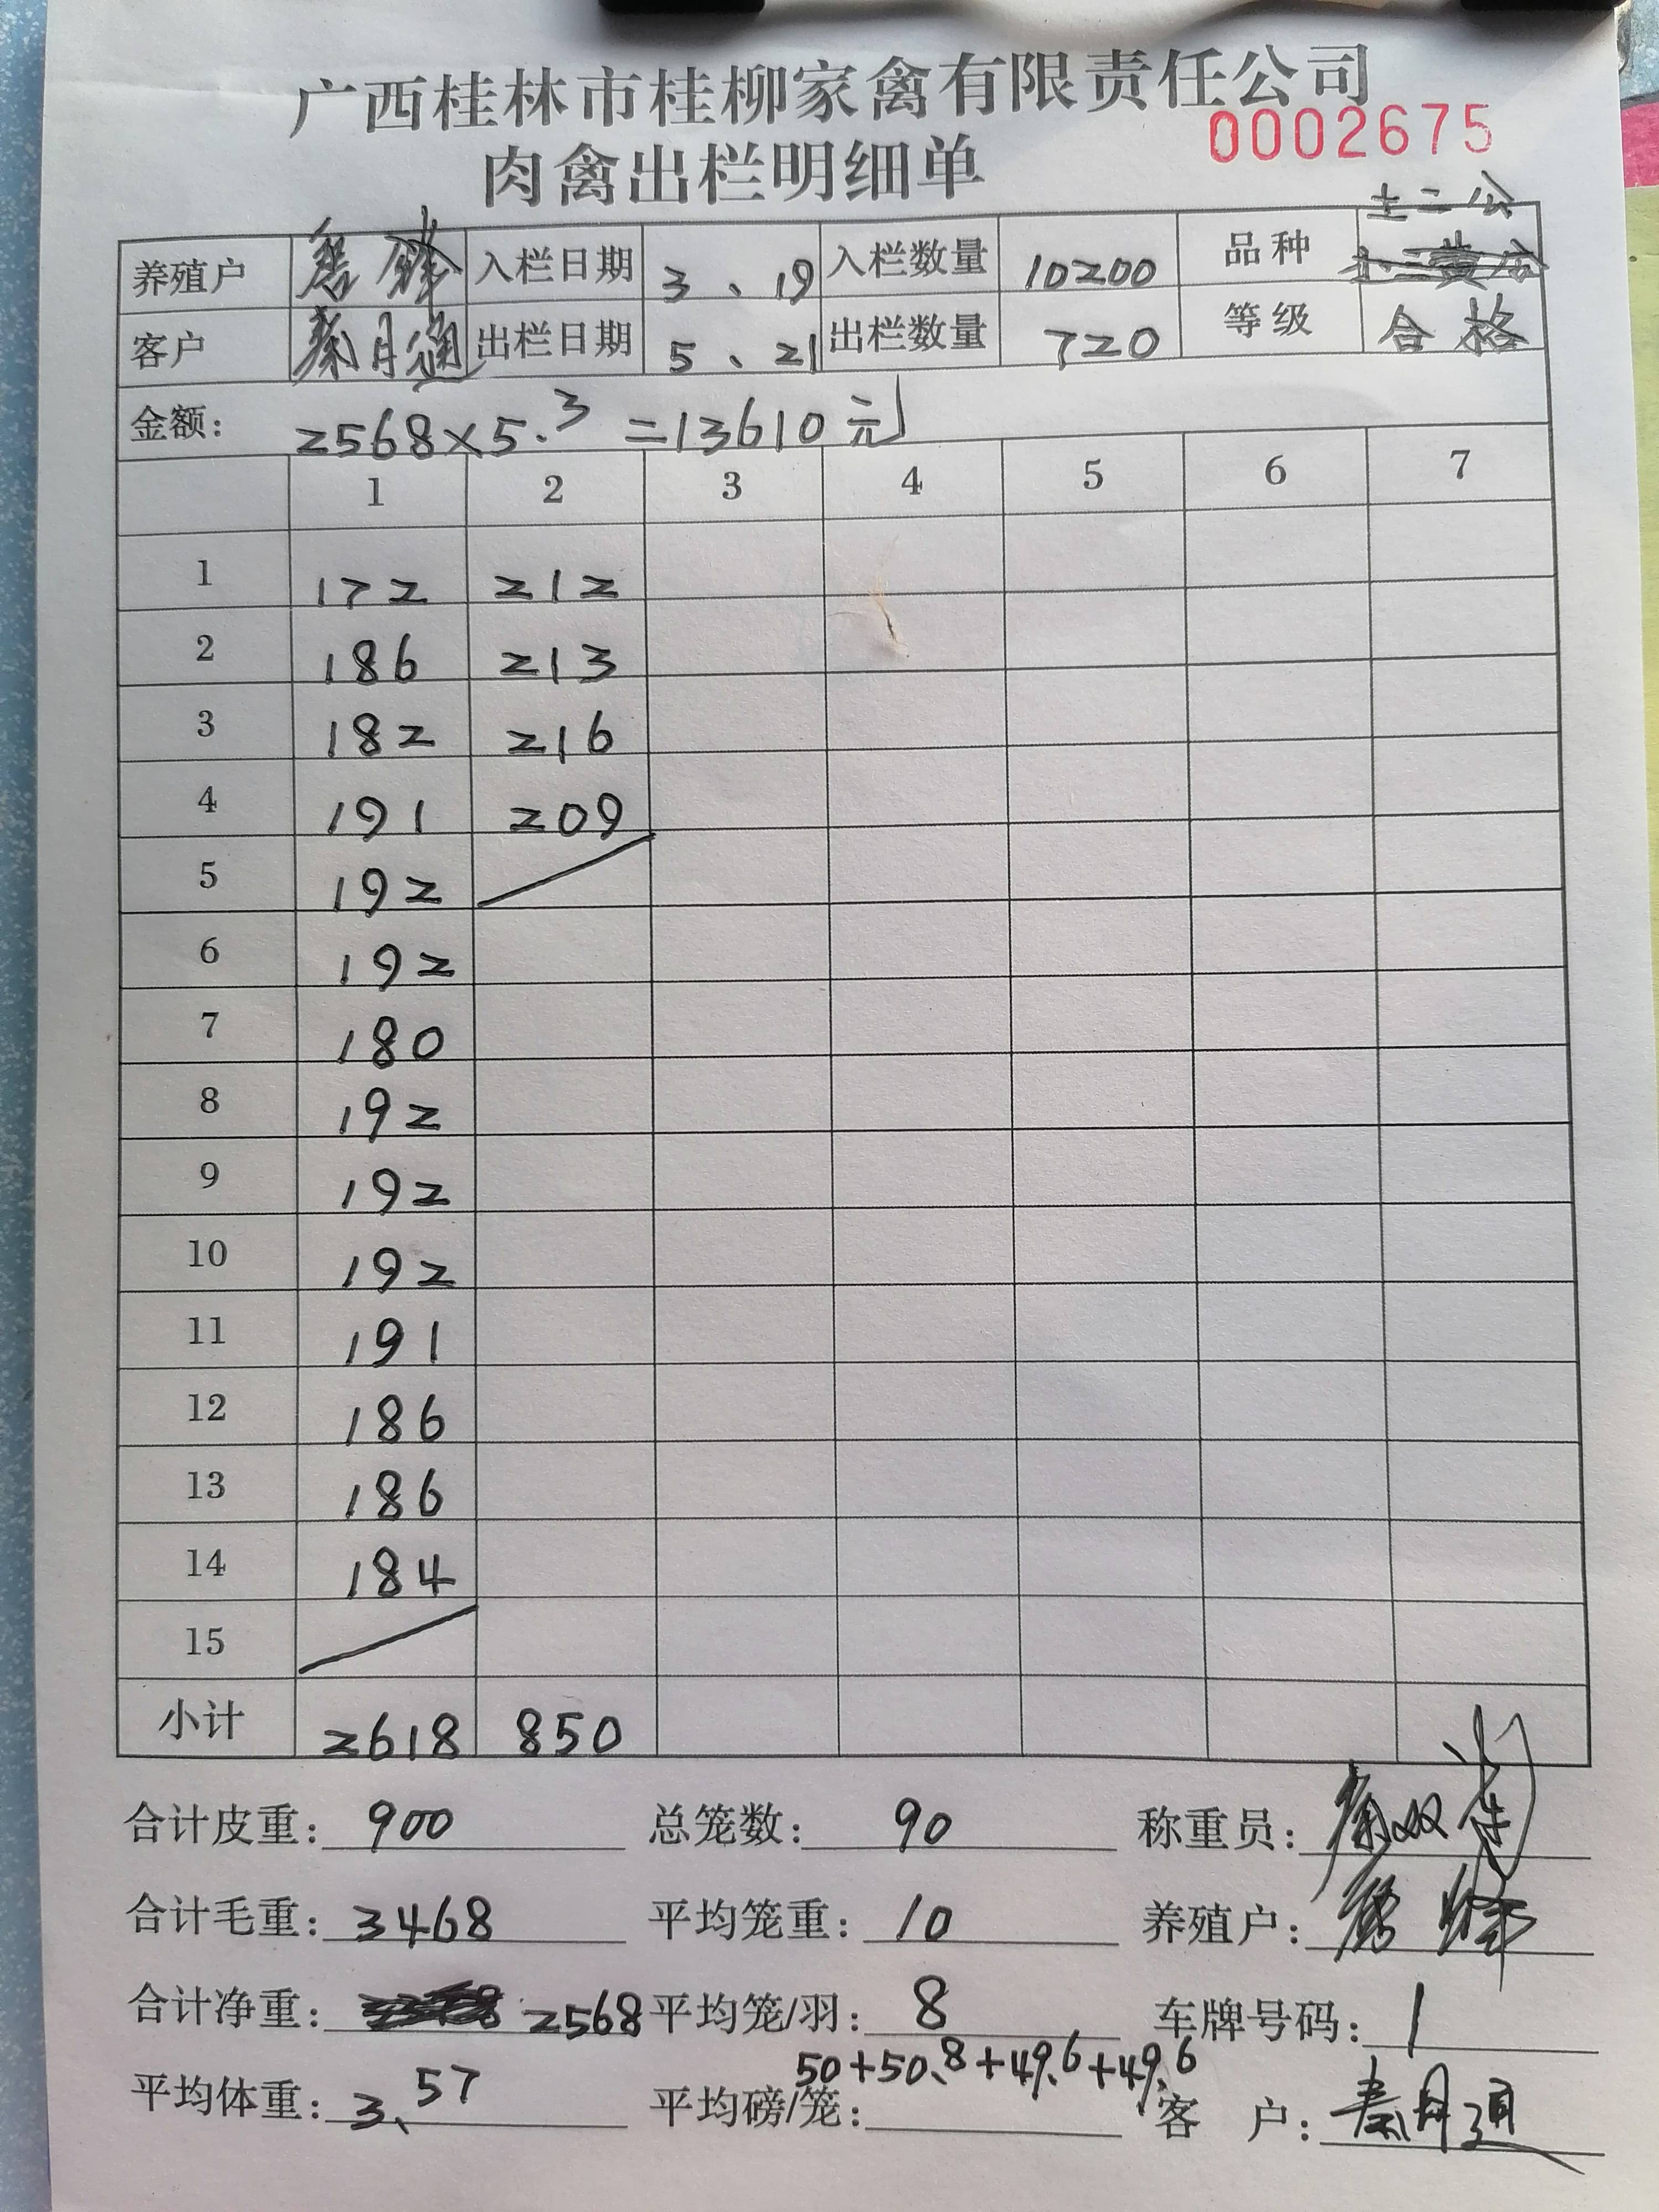 广西桂林市桂柳家禽有限责任公司
0002675
肉禽出栏明细单
土二公
养殖户 入栏日期 3、19 入栏数量 10200 品种
客户 秦月通 出栏日期 5、21 出栏数量 720 等级 合格
金额: 2568×5.3=13610元
1 2 3 4 5 6 7
1 172 212
2 186 213
3 182 216
4 191 209
5 192
6 192
7 180
8 192
9 192
10 192
11 191
12 186
13 186
14 184
15
小计 2618 850
合计皮重: 900 总笼数: 90 称重员:
合计毛重: 3468 平均笼重: 10 养殖户:
合计净重: 2568 平均笼/羽: 8 车牌号码: 1
50+50.8+49.6+49.6
平均体重: 3、57 平均磅/笼: 客 户: 秦月通